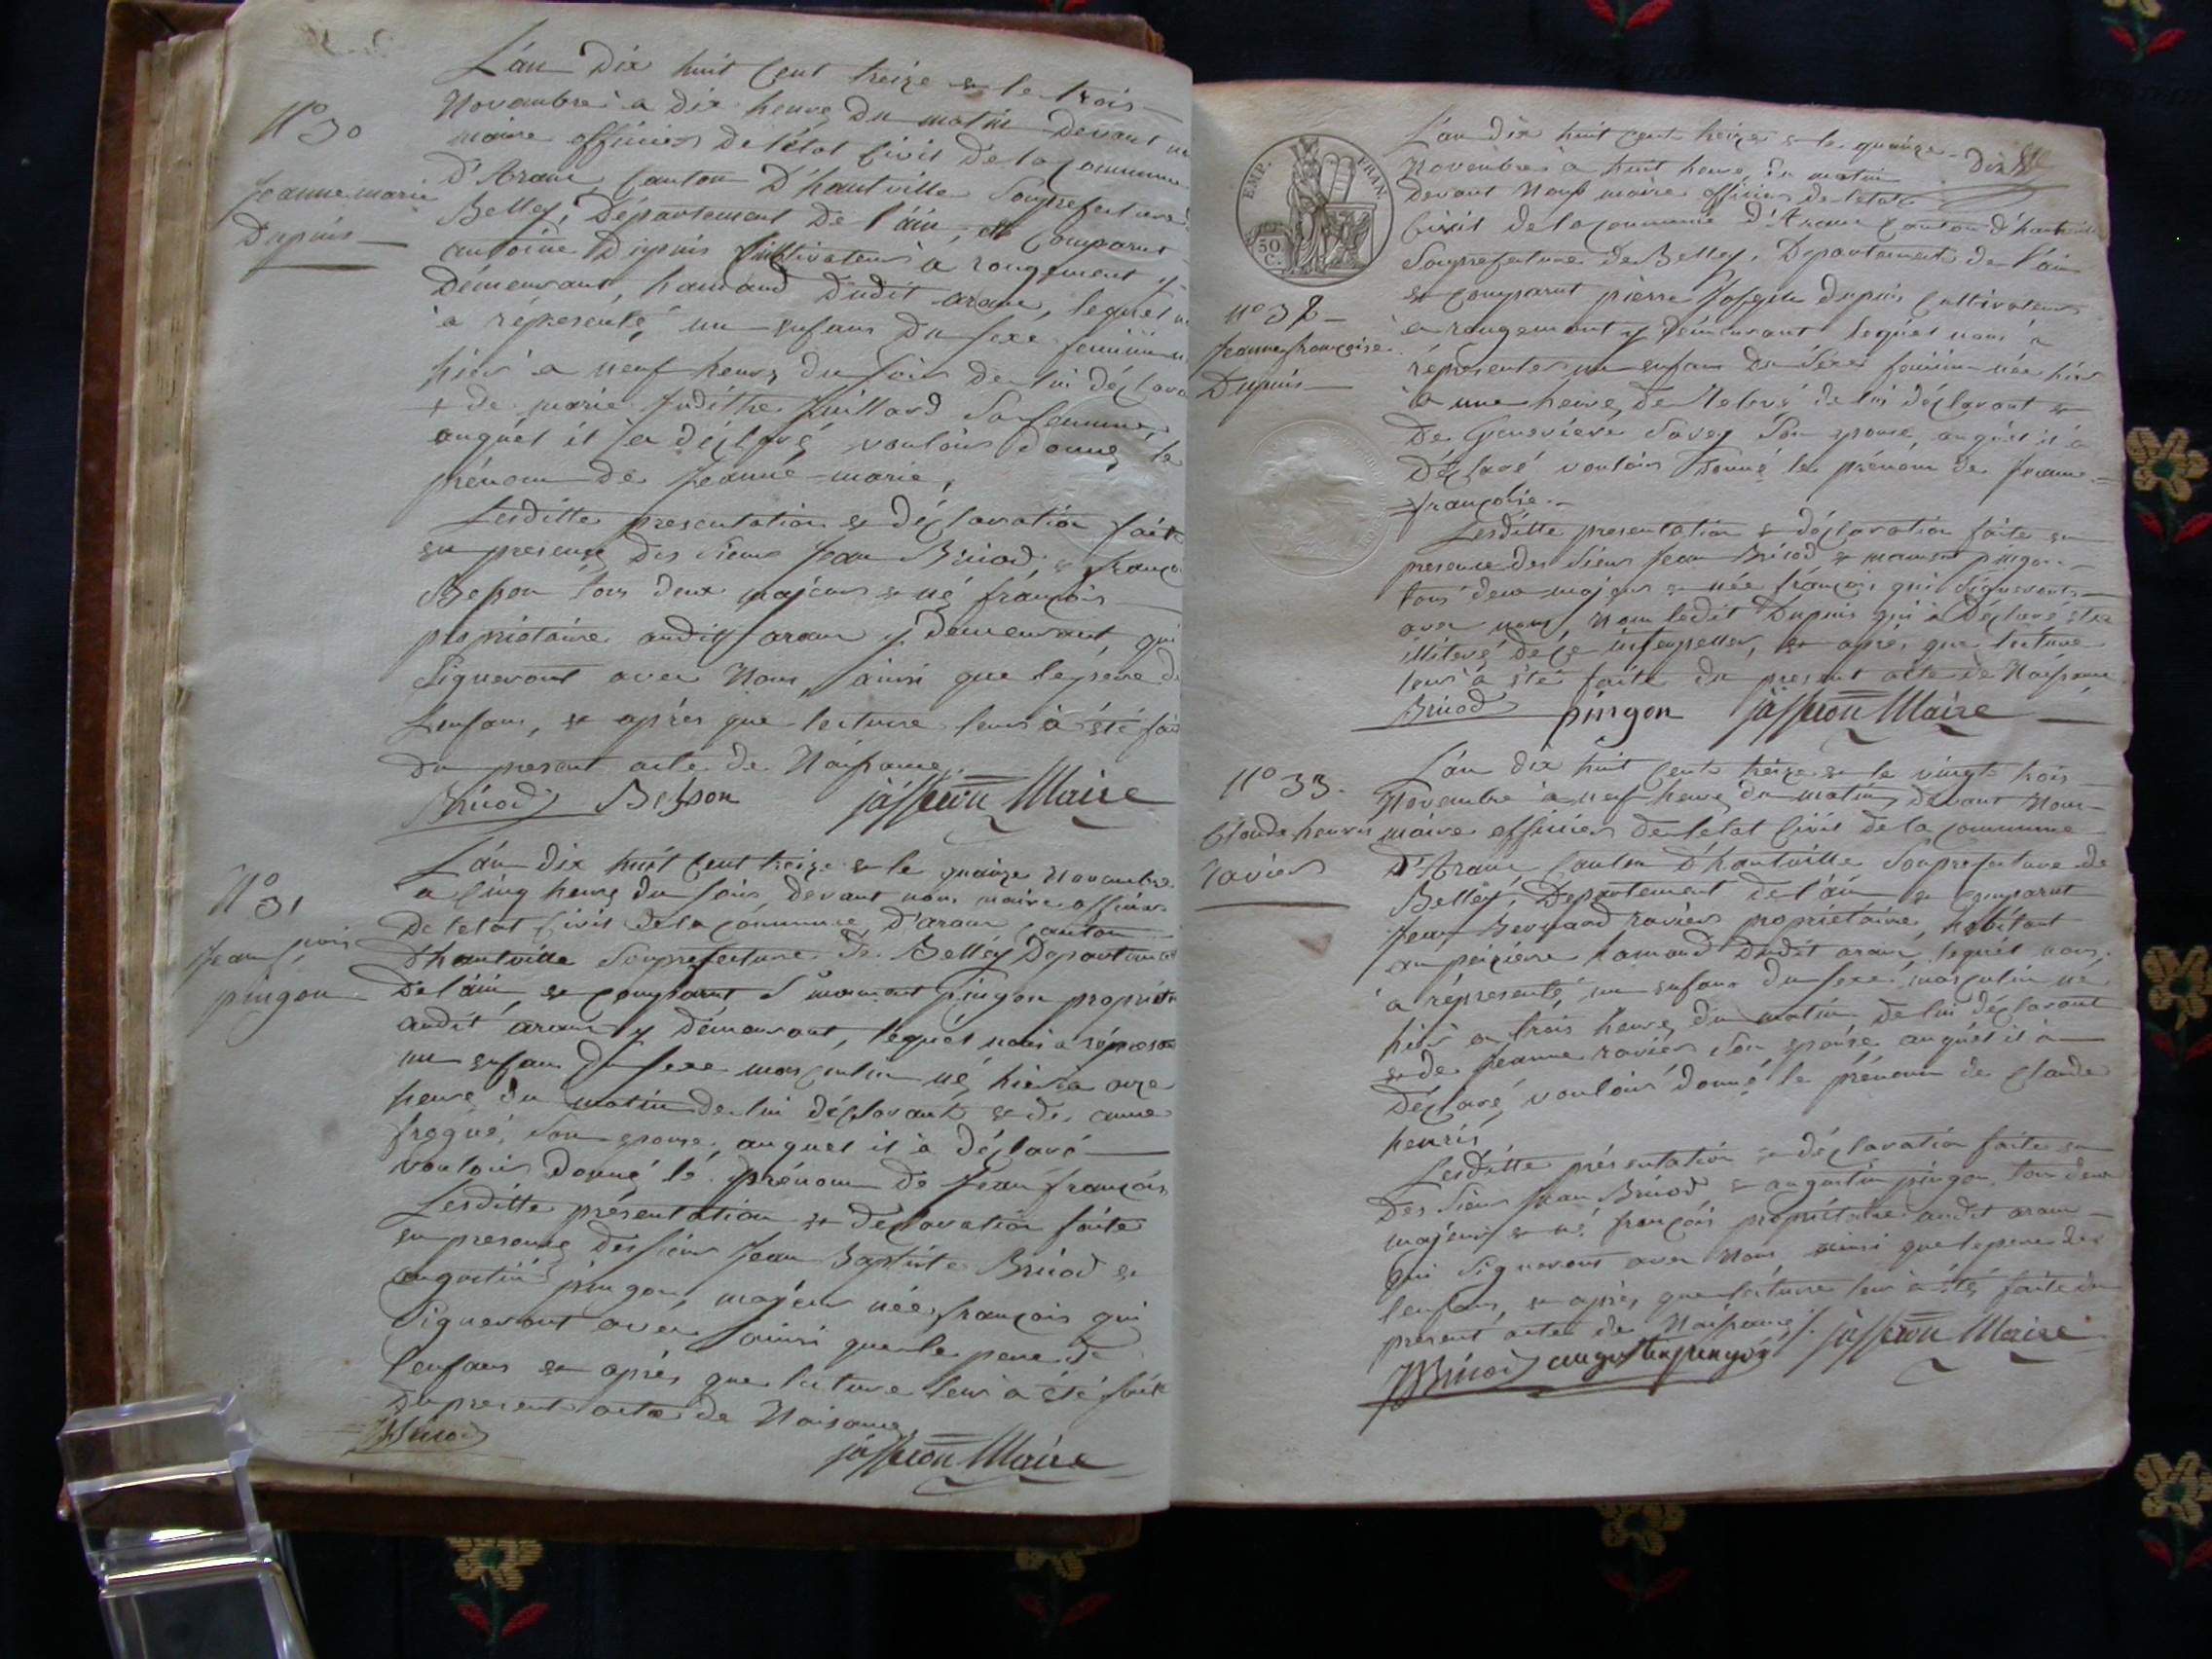 L'an Dix huit Cent treize & le trois
Novembre à dix heures du matin Devant
maire officier De l'état Civil De la Commune
N° 30
D'Aranc, Canton D'hautville Souprefecture
Jeanne marie
Dupuis
Belley, Département De l'ain, est Comparut
antoine Dupuis Cultivateur à rougemont y
Démeurant, hamaud dudit aranc, lequel
a réprésenté un enfans Du sexe feminin
hiér a neuf heures Du soir De lui déclara
& de marie Judithe Juillard Sa femme,
auquel il a déclaré vouloir donné le
prénom de Jeanne-marie,
Lesditte presentation & déclaration fait
en presence des Sieurs Jean Briod, &
Besson tous deux majeurs & né français
propriétaire audit aranc y demeurant, qui
Signeront avec Nous, ainsi que le père d
L'enfans, & après que lecture leur à été fai
Du present acte de Naissance,
Briod Besson jasseron Maire
N° 31
Jean françois
pingon
L'an dix huit Cent treize & le quinze Novembre
a Cinq heures du soir, devant nous maire officier
De letat Civil De la Commune, D'aranc Canton
D'hautville Souprefecture De Belley Departement
De l'ain, & Comparut S. mament pingon propriét
audit aranc y démeurant, lequel nous a répresen
un enfans du sexe masculin né, hièr a onze
heure du matin de lui déclarant & de anne
son epouse, auquel il à déclaré
vouloir donné lé prénom de Jean françois
Lesditte présentation & déclaration faite
en presence des sieurs Jean Baptiste Briod &
augustin pingon, majeur née français qui
Signeront avec ainsi que le pere de
l'enfans & après que lecture leur a été fait
Du present acte de Naisance
JBBriod jasseron Maire
EMP. FRAN.
50
C.
L'an dix huit Cent treize & le quinze
Novembre à huit heure du matin
devant Nous maire officier de letat
Civil de la Commune d'Aranc Canton d'hautville
Souprefecture de Belley, Departement de l'ain
& Comparut pierre Joseph dupuis Cultivateur
N° 32
a rougemont y démeurant lequel nous a
Jeanne françoise
Dupuis
réprésenter un enfans du sexe féminin née hièr
à une heure de Relevé de lui déclarant &
De Genevieve Savey Son epouse, auquel il a
Déclaré vouloir donné le prénom de Jeanne-
françoise.
Lesditte presentation & déclaration faite en
presence des Sieurs Jean Briod & mament pingon
tous deux majeurs & née français qui Signeronts
avec nous, non ledit Dupuis qui à Déclaré être
illiteré De ce interpeller, & après que lecture
leur à été faite du present acte de Naissance
Briod pingon jasseron Maire
N° 33
Claude henris
raviér
L'an dix huit Cent treize & le vingt trois
Novembre à neuf heures du matin, devant Nous
maire officier de letat Civil de la Commune
D'Aranc Canton D'hautville Souprefecture de
Belley, Departement de l'ain & Comparut
Jean Bernard ravier propriétaire, habitant
hamaud Dudit aranc, lequel nous
a réprésenté, un enfans du sexe masculin né
hièr a trois heures du matin de lui déclarant
& de Jeanne ravier Son epouse auquel il à
Déclaré vouloir donné le prénom de Claude
henris,
Lesditte présentation & déclaration faite en
Des Sieurs Jean Briod & augustin pingon, tous deux
majeurs & né français propriétaire audit aranc
qui Signeront avec Nous ainsi que le pere de
lenfans, & après que lecture leur à été faite du
present acte de Naissance
JBBriod augustin pingon jasseron Maire